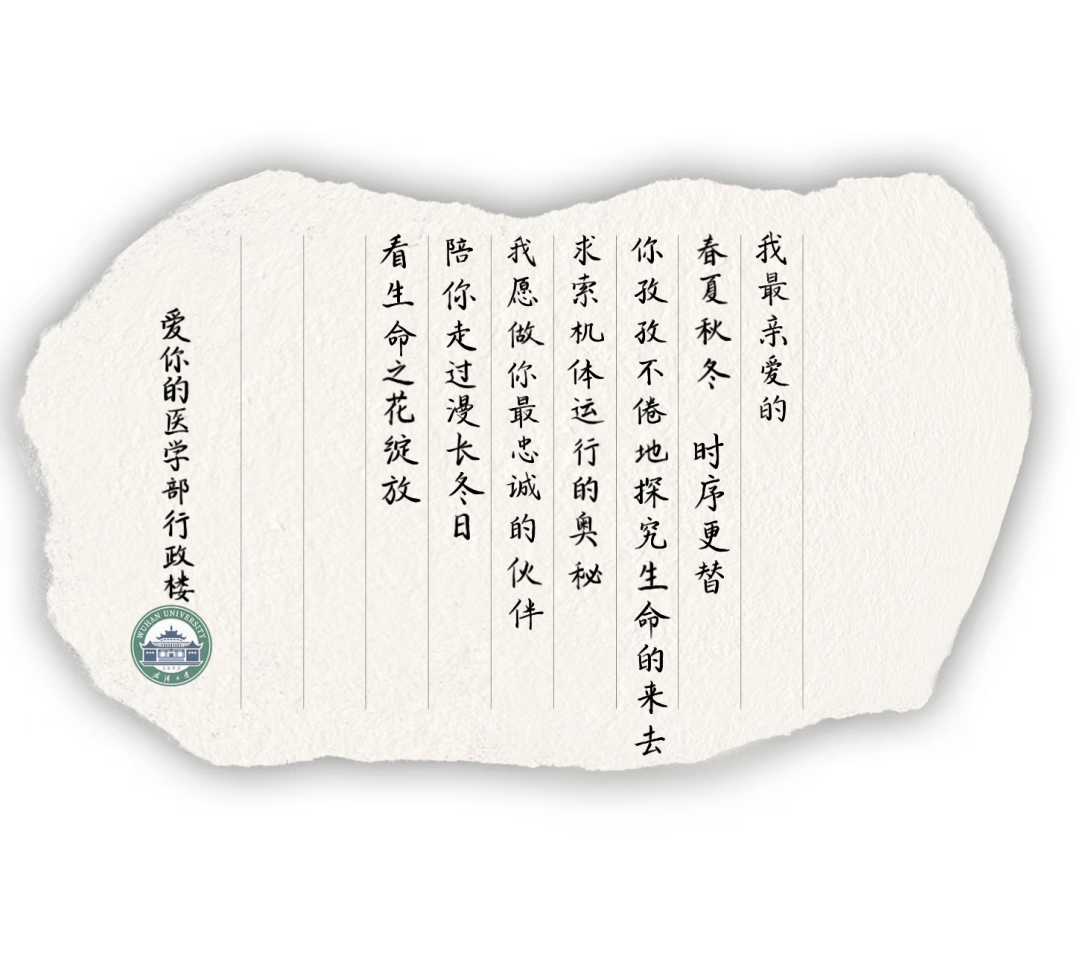 我最亲爱的
春夏秋冬 时序更替
你孜孜不倦地探究生命的来去
求索机体运行的奥秘
我愿做你最忠诚的伙伴
陪你走过漫长冬日
看生命之花绽放
爱你的医学部行政楼
WUHAN UNIVERSITY
1893
武汉大学